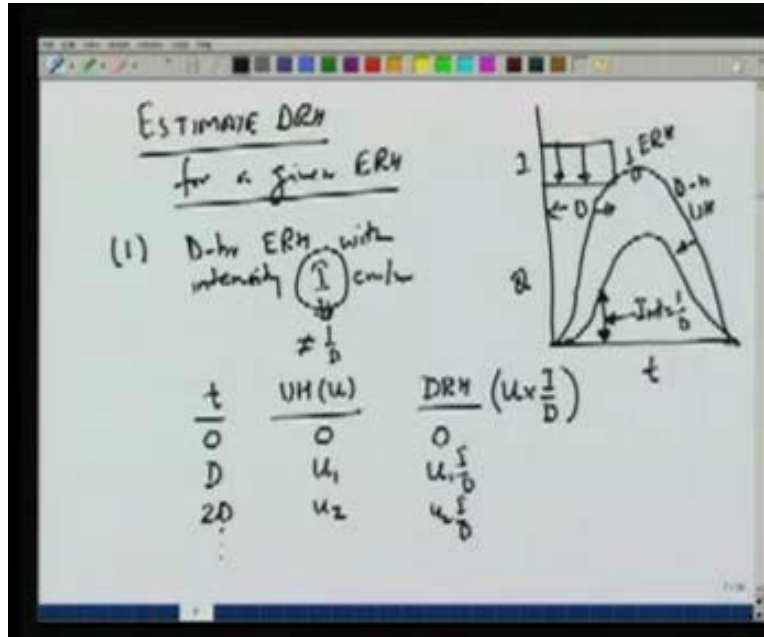 ESTIMATE DRH
for a given ERH
(1) D-hr ERH with
intensity I cm/hr
≠ 1/D
t UH(u) DRH (U × I/D)
0 0 0
D u₁ u₁ I/D
2D u₂ u₂ I/D
⋮
I
ERH
D
D-h
UH
Q
t